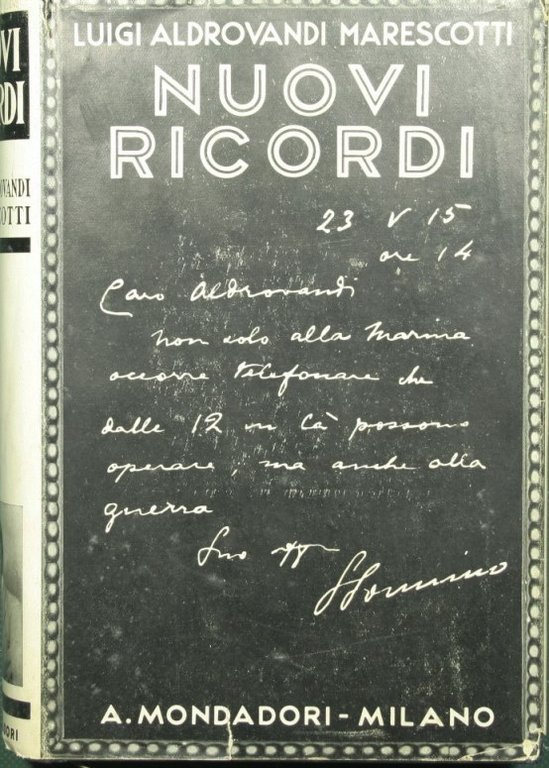 LUIGI ALDROVANDI MARESCOTTI
NUOVI
RICORDI
23 V 15
ore 14
Caro Aldrovandi
non solo alla Marina
occorre telefonare che
dalle 12 in là possono
operare, ma anche alla
guerra
Suo aff
SSonnino
A. MONDADORI - MILANO
OVI
RDI
OVANDI
OTTI
ORI